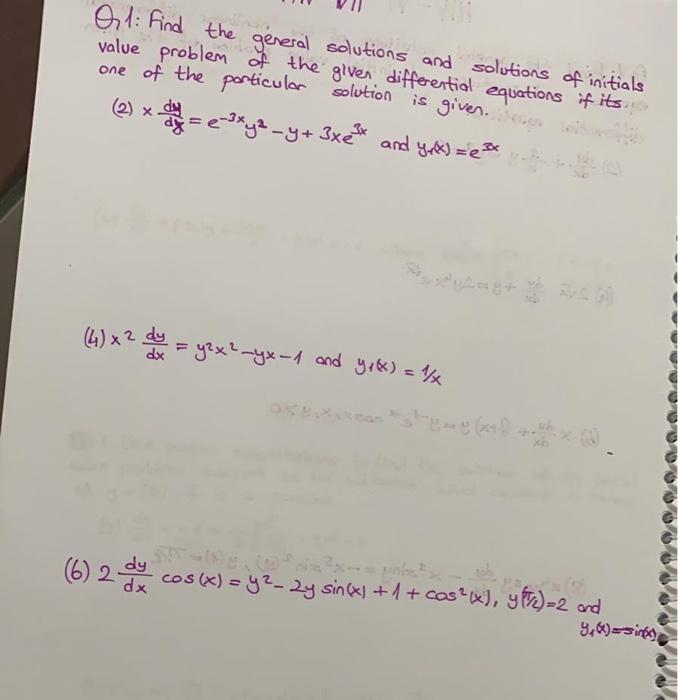 Q1: Find the general solutions and solutions of initials
value problem of the given differential equations if its
one of the particular solution is given.
(2) x dy/dx = e^-3x y² - y + 3xe^3x and y₁(x) = e^3x
(4) x² dy/dx = y²x² - yx - 1 and y₁(x) = 1/x
(6) 2 dy/dx cos(x) = y² - 2y sin(x) + 1 + cos²(x), y(π/2) = 2 and
y₁(x) = sin(x)